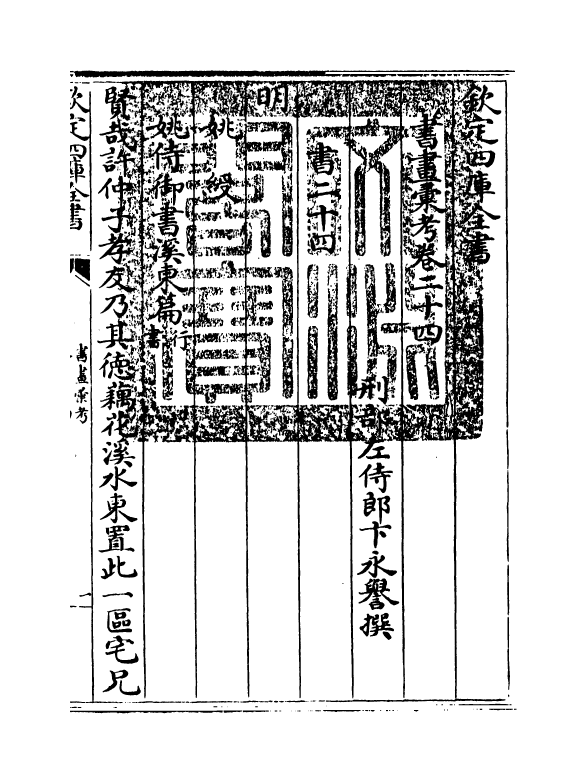 欽定四庫全書
書畫彙考卷二十四
刑部左侍郎卞永譽撰
書二十四
明
姚綬
姚侍御書溪東篇行書
賢哉許仲子孝友乃其徳藕花溪水東置此一區宅兄
欽定四庫全書
書畫彙考
一